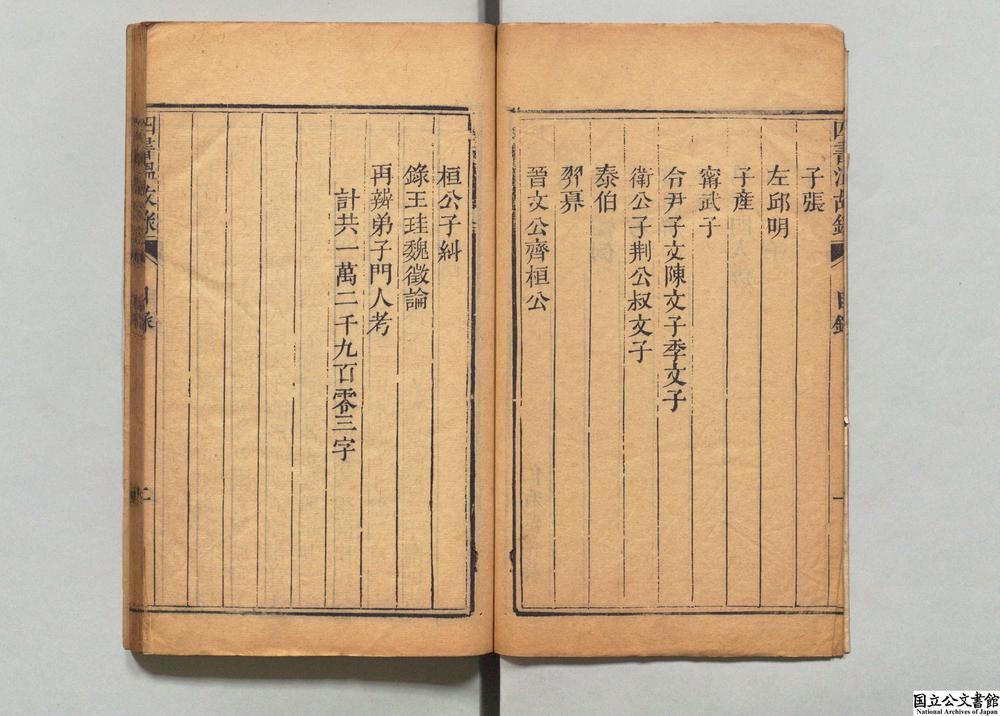 子張
左邱明
子產
甯武子
令尹子文陳文子季文子
衛公子荆公叔文子
泰伯
羿奡
晉文公齊桓公
桓公子糾
錄王珪魏徵論
再辨弟子門人考
計共一萬二千九百零三字
四書溫故錄
目錄
一
四書溫故錄
目錄
二
国立公文書館
National Archives of Japan